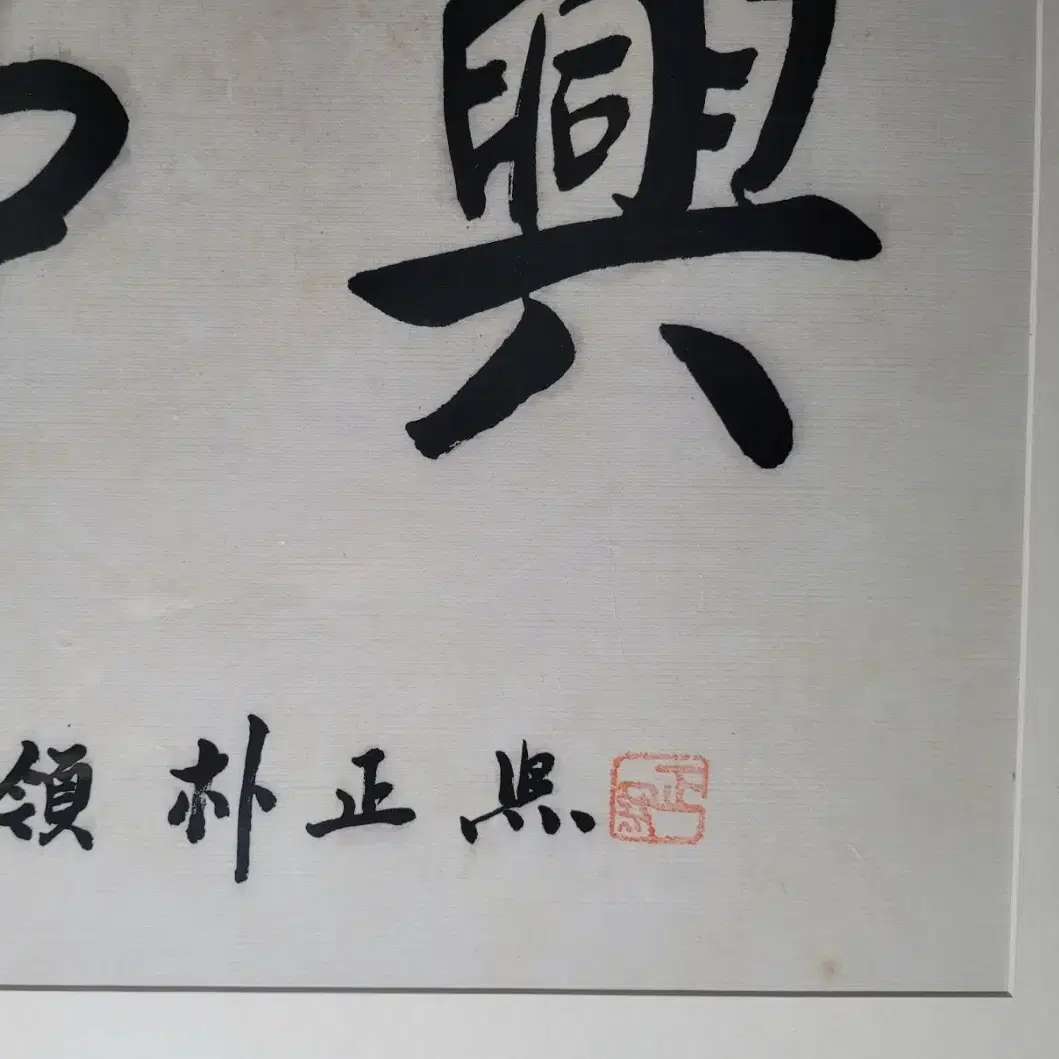 興
領朴正熙